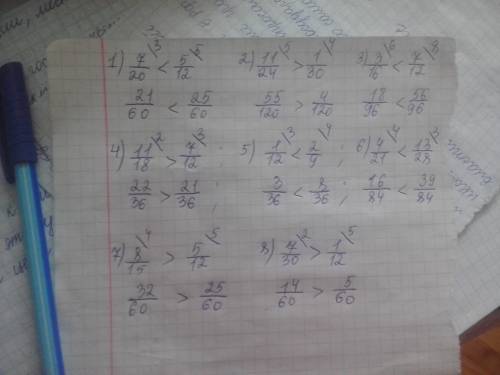 1) 7/20 \3 < 5/12 \5 2) 11/24 \5 > 1/30 \4 3) 3/16 \6 < 7/12 \8
21/60 < 25/60 55/120 > 4/120 18/96 < 56/96
4) 11/18 \2 > 7/12 \3 ; 5) 1/12 \3 < 2/9 \4 ; 6) 4/21 \4 < 13/28 \3
22/36 > 21/36 ; 3/36 < 8/36 ; 16/84 < 39/84
7) 8/15 \4 > 5/12 \5 8) 7/30 \2 > 1/12 \5
32/60 > 25/60 14/60 > 5/60